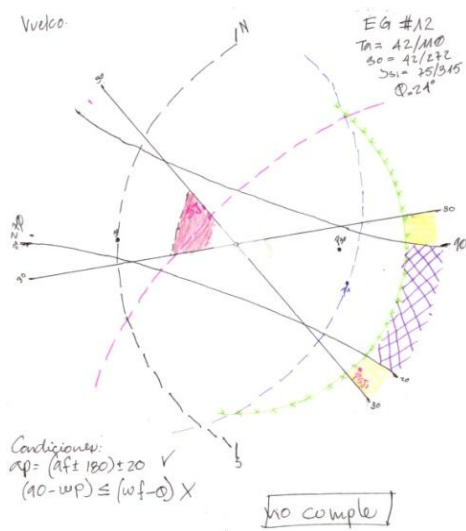 Vuelco:
N
EG #12
Ta= 42/110
so = 42/272
Js1= 75/315
Φ=21°
80
90
20
80
S
Condiciones:
αp= (αf± 180)±20 ✓
(90-ψp) ≤ (ψf-Φ) X
no cumple